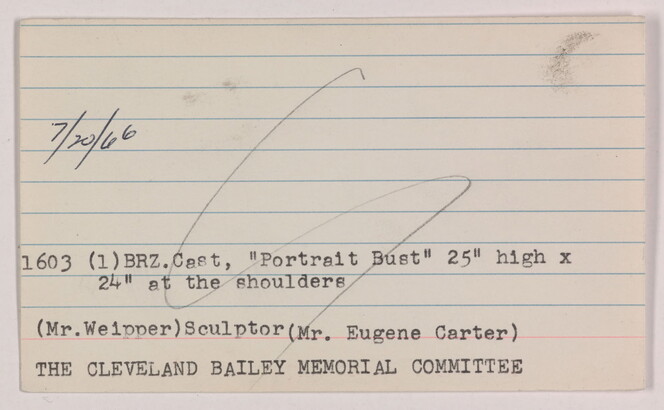 7/20/66
1603 (1)BRZ.Cast, "Portrait Bust" 25" high x
24" at the shoulders
(Mr.Weipper)Sculptor(Mr. Eugene Carter)
THE CLEVELAND BAILEY MEMORIAL COMMITTEE